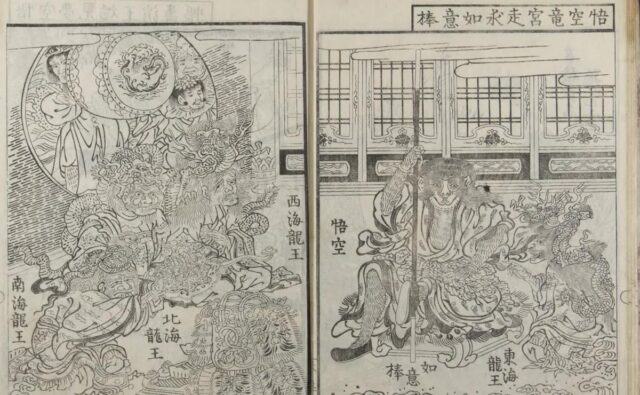 悟空竜宮走求如意棒
悟空
東海
龍王
如意棒
西海龍王
北海
龍王
南海龍王